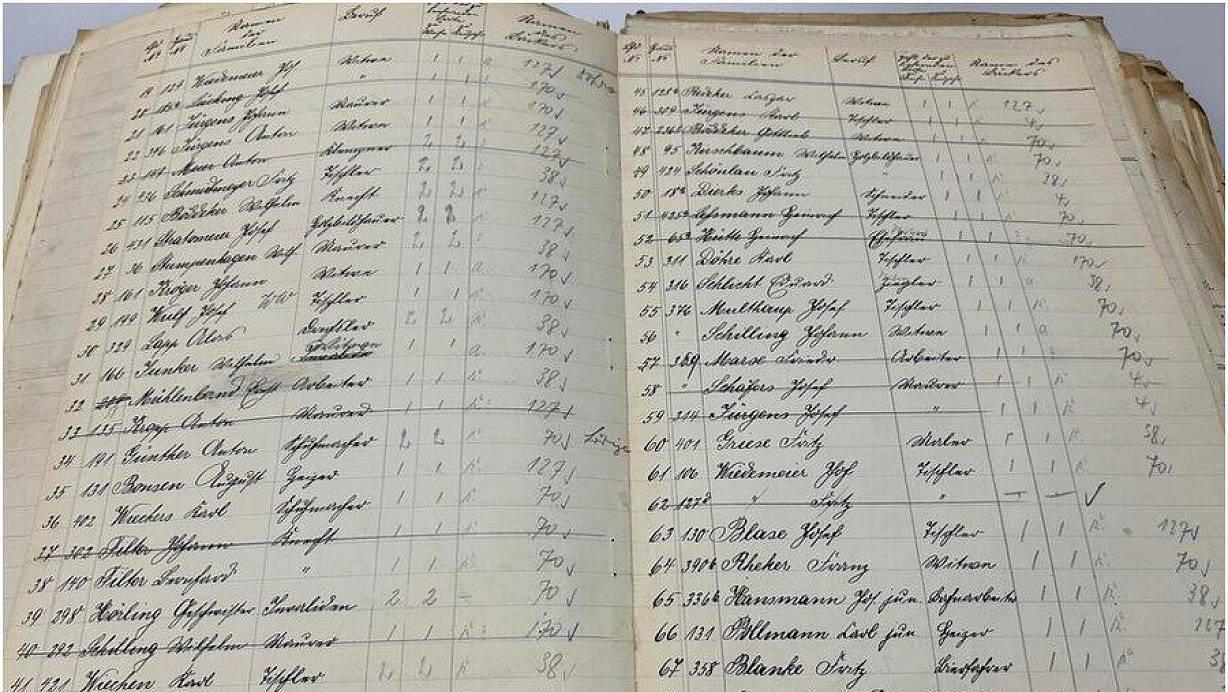 Namen der Familien Beruf Namen des Bäckers
19 124 Wiedemeier Jos Witwe 1 1 127
20 Lücking Josef " 1 1 170
21 161 Jürgens Johann Maurer 1 1 170
22 346 Jürgens Anton Witwe 1 1 127
23 Meier Anton Klempner 2 2 127
24 236 Schniedmeyer Fritz Tischler 2 2 38
25 115 Böddeker Wilhelm Knecht 2 2 127
26 431 Stratemeier Josef Holzbildhauer 2 2 127
27 36 Stumpenhagen Maurer 2 2 38
28 161 Kröger Johann Witwe 1 1 a. 170
29 149 Wulf Josef WW Tischler 1 1 170
30 329 Lapp Alois 2 2 K 38
31 166 Junker Wilhelm Invalide 1 1 a. 170
32 Mühlenbernd Arbeiter 1 1 K 38
33 135 Kropp Anton Maurer 1 1 K 127
34 191 Günther Anton Schuhmacher 2 2 K 70
35 131 Bonsen August Heizer 1 1 K 127
36 402 Wiechers Karl Schuhmacher 1 1 K 70
37 302 Filter Johann Knecht 1 1 K 70
38 140 Filter Bernhard " 1 1 K 70
39 298 Höiling Geschwister Invaliden 2 2 – 70
40 292 Schilling Wilhelm Maurer 1 1 K 170
41 421 Wiechen Karl Tischler 2 2 K 38
Namen der Familien Beruf Name des Bäckers
45 Witwe 1 1 K 127
46 309 Jürgens Karl Tischler 1 1 K 4
47 Böddeker Gottlieb Witwe 1 1 K 70
48 95 Kirschbaum Wilhelm Holzbildhauer 1 1 K 70
49 424 Schönlau Fritz " 1 1 K 38
50 18a Dierks Johann Schneider 1 1 K 4
51 Lehmann Heinrich Tischler 1 1 K 70
52 Hütte Heinrich 1 1 70
53 311 Döhre Karl Tischler 1 1 170
54 316 Schlicht Eduard Ziegler 1 1 38
55 376 Multhaup Josef Tischler 1 1 K 70
56 " Schilling Johann Witwe 1 1 a 70
57 369 Marse Arbeiter 1 1 K 70
58 " Schäfers Josef Maurer 1 1 K 4
59 314 Jürgens Josef " 1 1 K 4
60 401 Griese Fritz Maler 1 1 K 38
61 106 Wiedemeier Jos Tischler 1 1 K 70
62 127d " Fritz "
63 130 Blase Josef Tischler 1 1 K 127
64 390b Rheker Franz Witwe 1 1 K 70
65 336b Hansmann Jos. jun Bahnarbeiter 1 1 K 38
66 131 Bollmann Karl jun Heizer 1 1 K 127
67 358 Blanke Fritz Bierfahrer 1 1 K